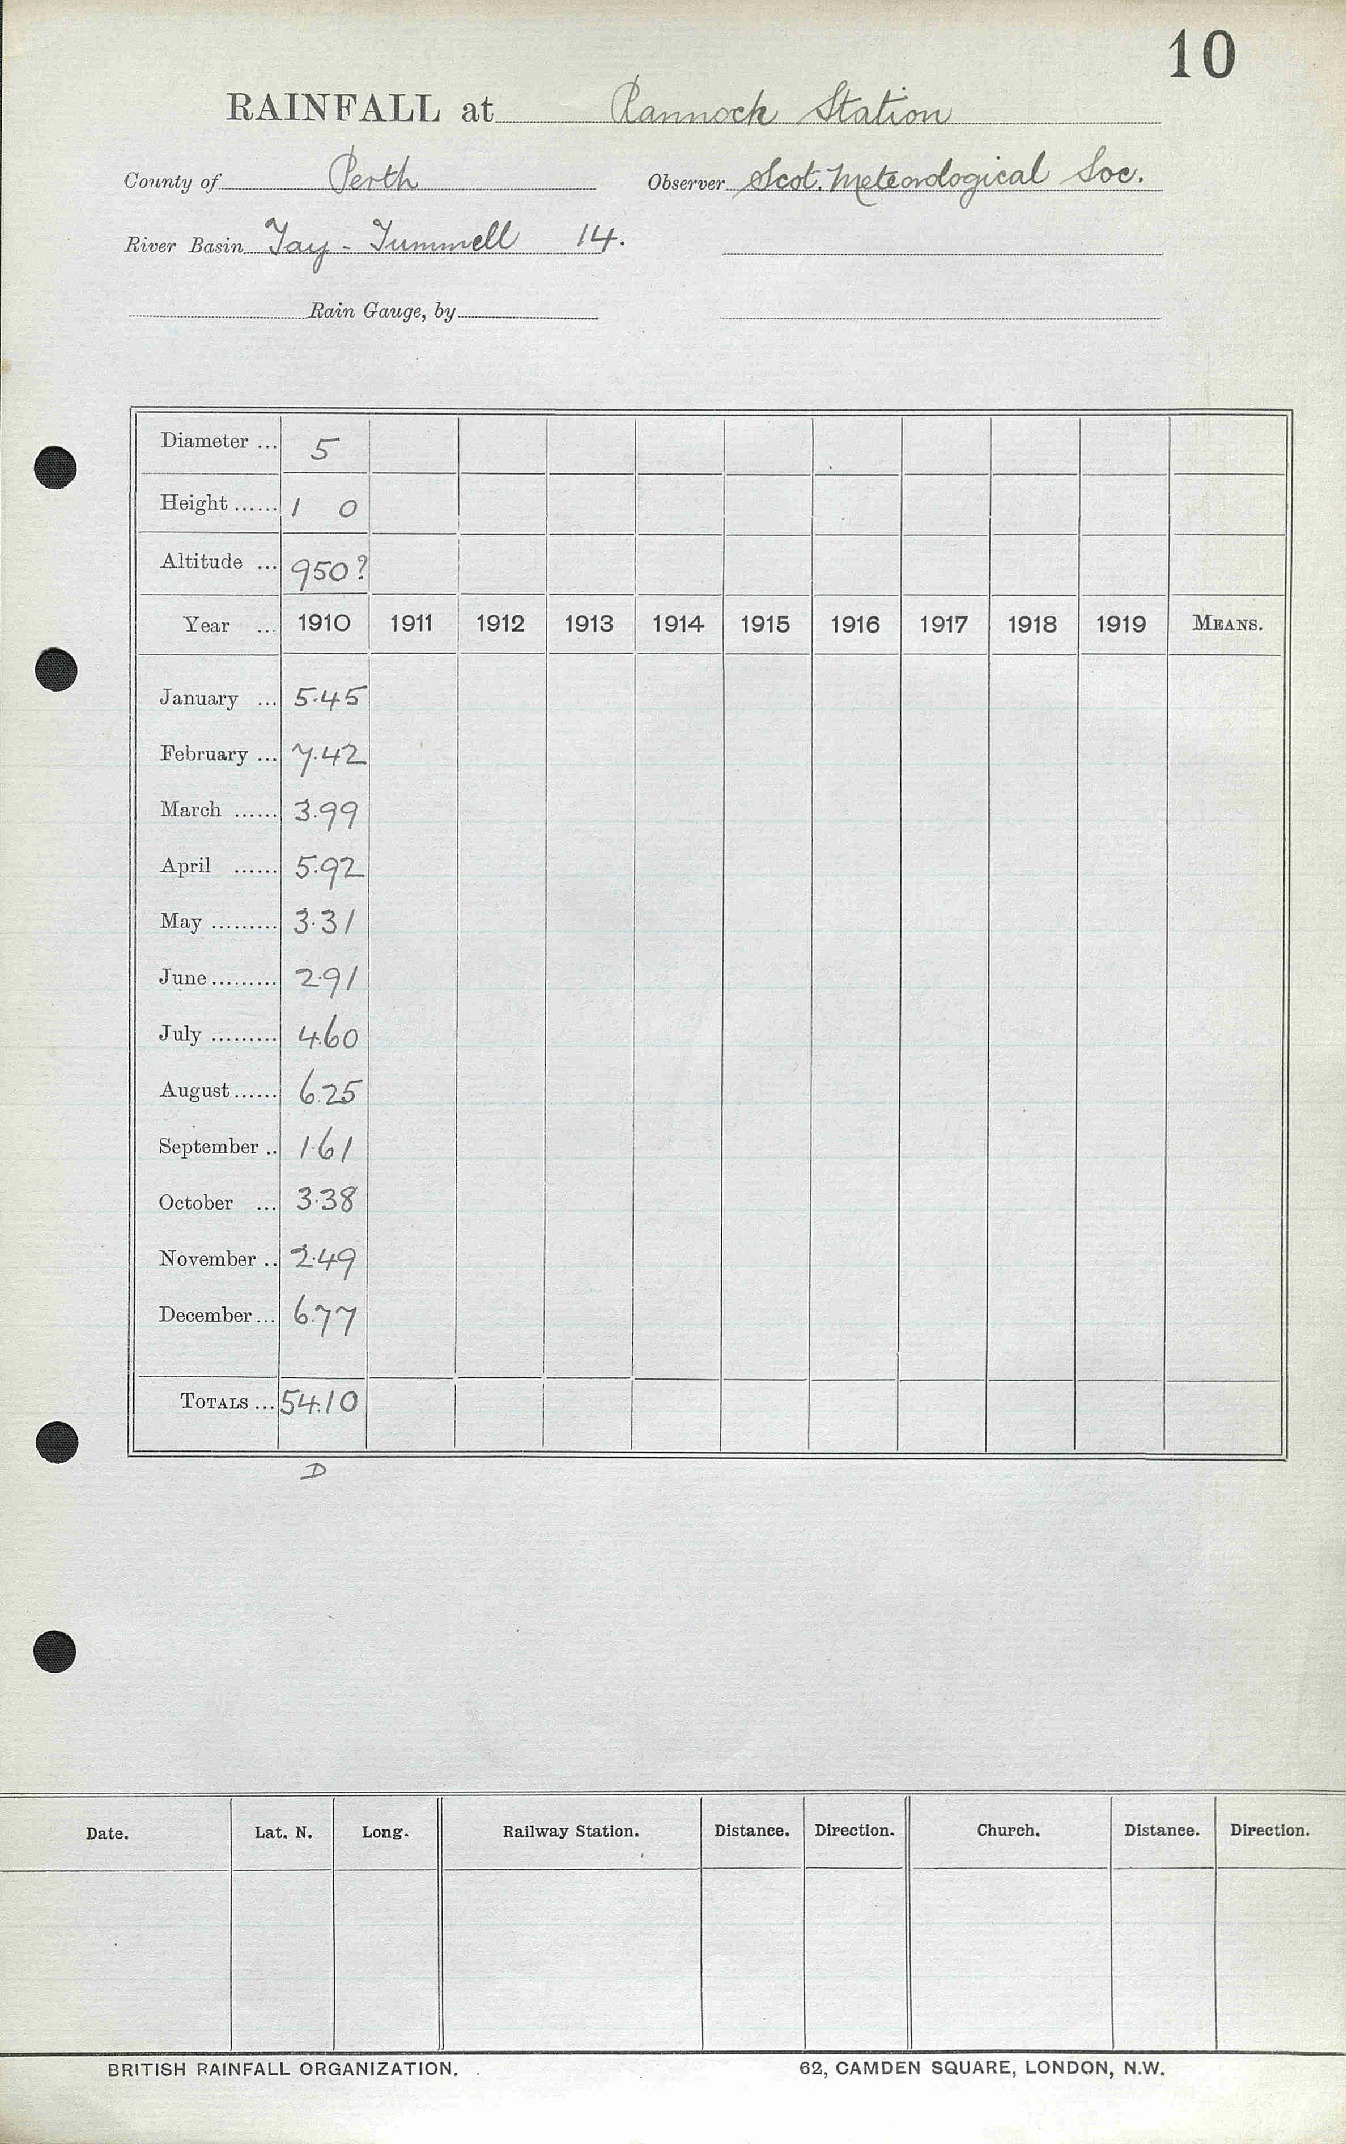 10
RAINFALL at Rannoch Station
County of Perth Observer Scot. Meteorological Soc.
River Basin Tay - Tummell 14.
Rain Gauge, by
Diameter ... 5
Height ...... 1 0
Altitude ... 950?
Year ... 1910 1911 1912 1913 1914 1915 1916 1917 1918 1919 MEANS.
January ... 5.45
February ... 7.42
March ...... 3.99
April ...... 5.92
May ......... 3.31
June ......... 2.91
July ......... 4.60
August ...... 6.25
September .. 1.61
October ... 3.38
November .. 2.49
December ... 6.77
TOTALS ... 54.10
D
Date. Lat. N. Long. Railway Station. Distance. Direction. Church. Distance. Direction.
BRITISH RAINFALL ORGANIZATION. 62, CAMDEN SQUARE, LONDON, N.W.